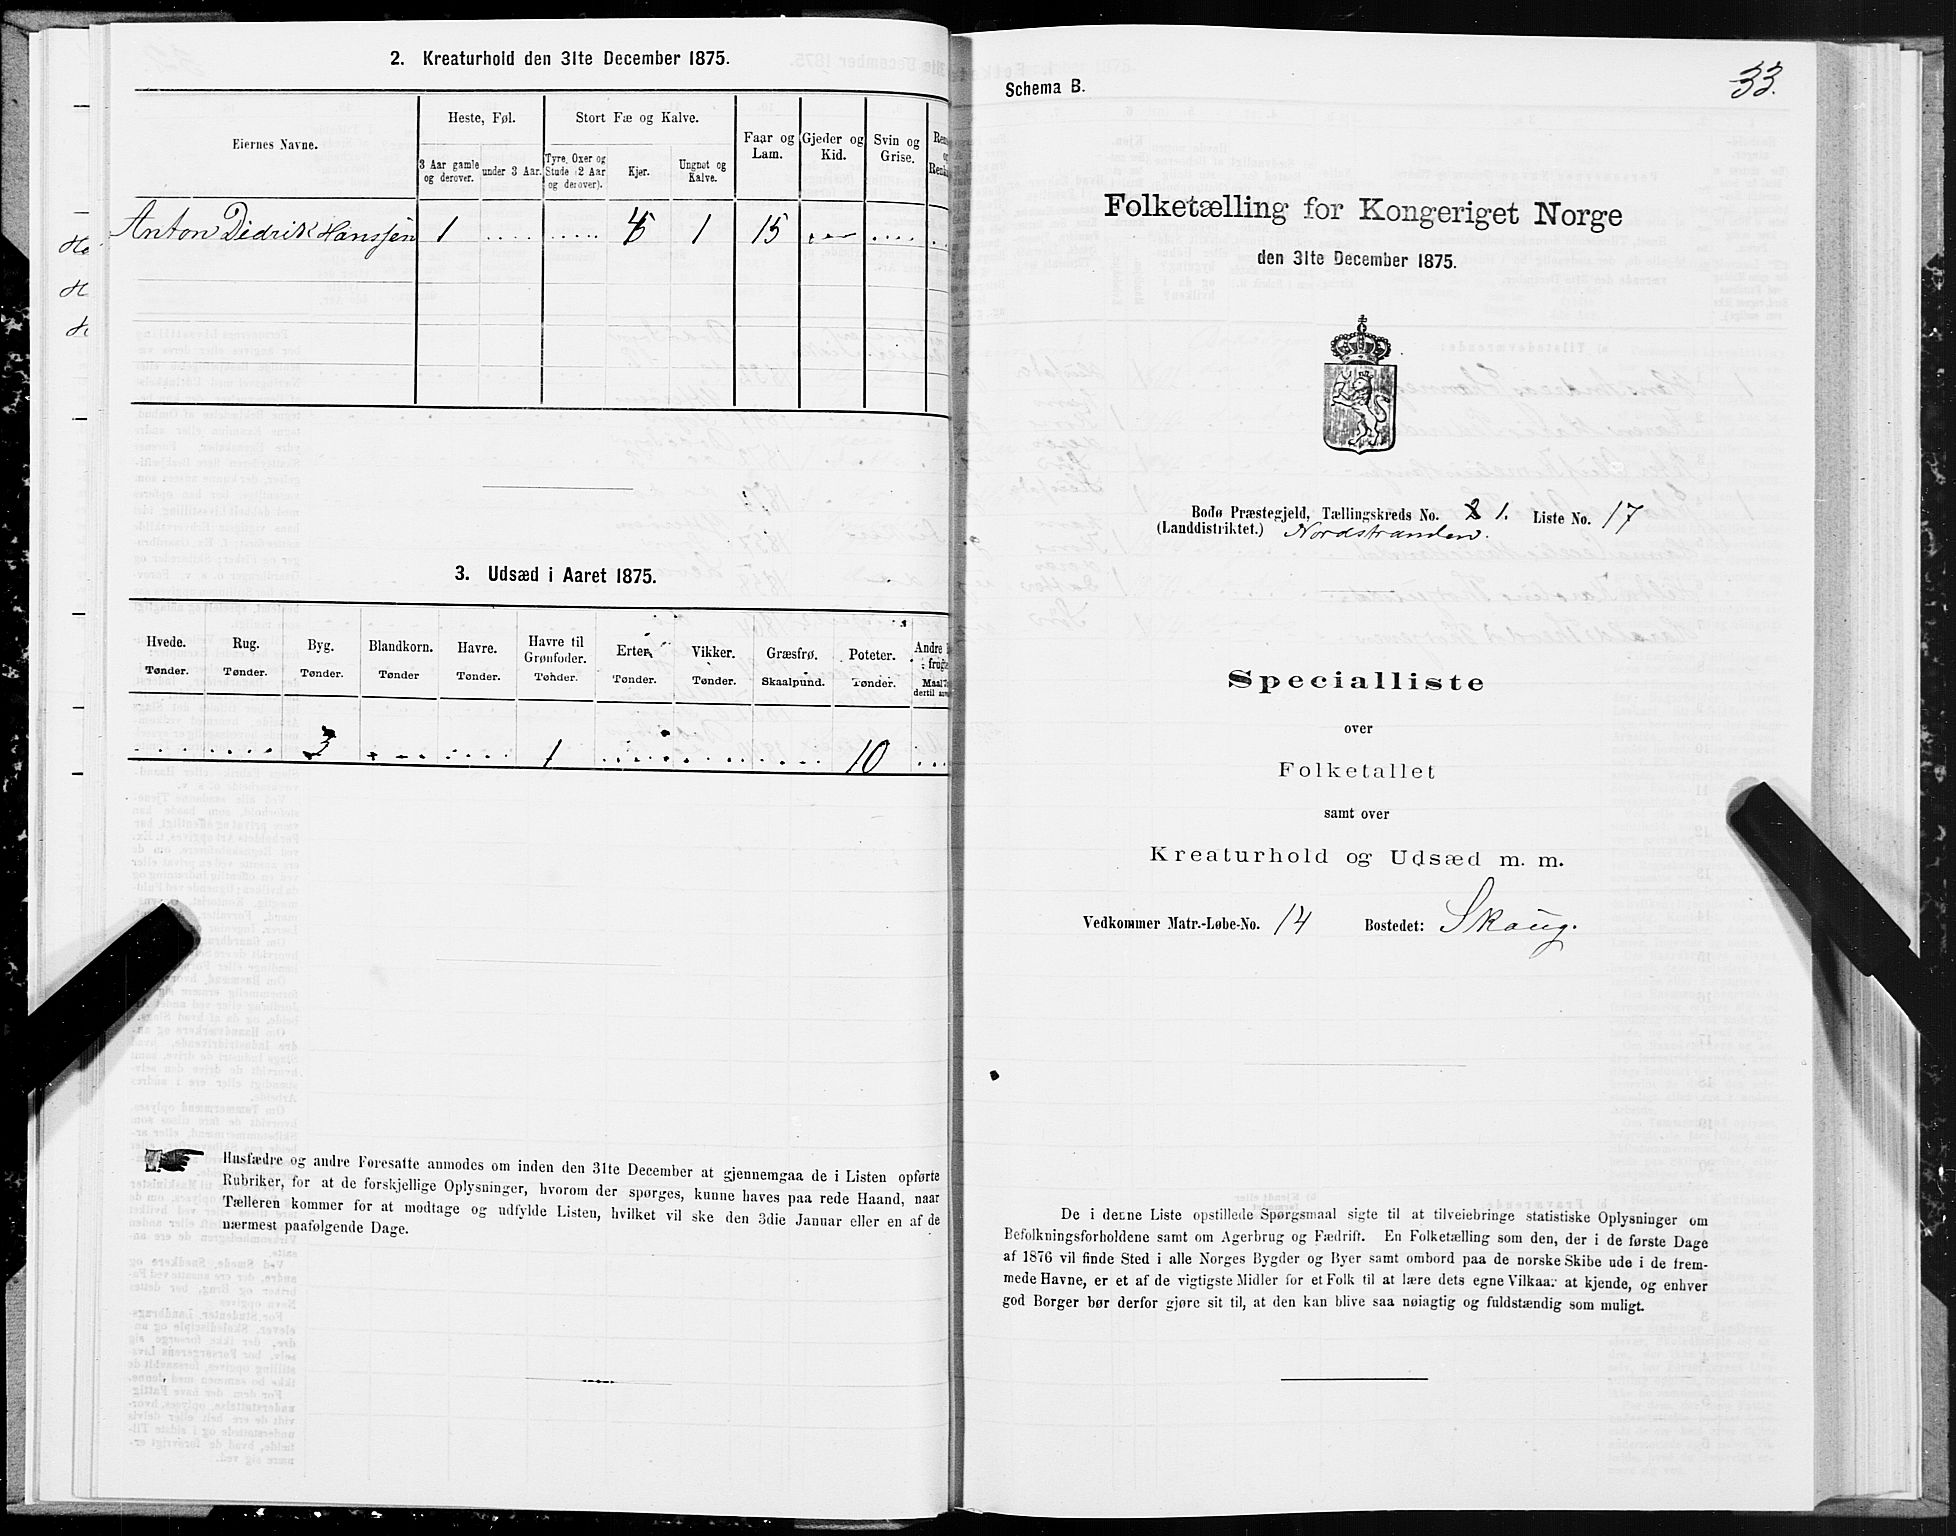 2. Kreaturhold den 31te December 1875.
Eiernes Navne.
Heste, Føl.
Stort Fæ og Kalve.
Faar og Lam.
Gjeder og Kid.
Svin og Grise.
3 Aar gamle og derover.
under 3 Aar.
Tyre, Oxer og Stude (2 Aar og derover).
Kjer.
Ungnøt og Kalve.
Anton Didrik Hanssen 1 ..... ..... 5 1 15 ... .... ..
3. Udsæd i Aaret 1875.
Hvede. Rug. Byg. Blandkorn. Havre. Havre til Grønfoder. Erter. Vikker. Græsfrø. Poteter. Andre
Tønder. Tønder. Tønder. Tønder Tønder. Tønder. Tønder. Tønder. Skaalpund. Tønder.
.... .... 3 .... .... 1 .... .... .... 10 ...
Husfædre og andre Foresatte anmodes om inden den 31te December at gjennemgaa de i Listen opførte
Rubriker, for at de forskjellige Oplysninger, hvorom der spørges, kunne haves paa rede Haand, naar
Tælleren kommer for at modtage og udfylde Listen, hvilket vil ske den 3die Januar eller en af de
nærmest paafølgende Dage.
Schema B.
33.
Folketælling for Kongeriget Norge
den 31te December 1875.
Bodø Præstegjeld, Tællingskreds No. 1. Liste No. 17
(Landdistriktet.) Nordstranden.
Specialliste
over
Folketallet
samt over
Kreaturhold og Udsæd m. m.
Vedkommer Matr.-Løbe-No. 14 Bostedet: Skaug.
De i denne Liste opstillede Spørgsmaal sigte til at tilveiebringe statistiske Oplysninger om
Befolkningsforholdene samt om Agerbrug og Fædrift. En Folketælling som den, der i de første Dage
af 1876 vil finde Sted i alle Norges Bygder og Byer samt ombord paa de norske Skibe ude i de frem-
mede Havne, er et af de vigtigste Midler for et Folk til at lære dets egne Vilkaar at kjende, og enhver
god Borger bør derfor gjøre sit til, at den kan blive saa nøiagtig og fuldstændig som muligt.